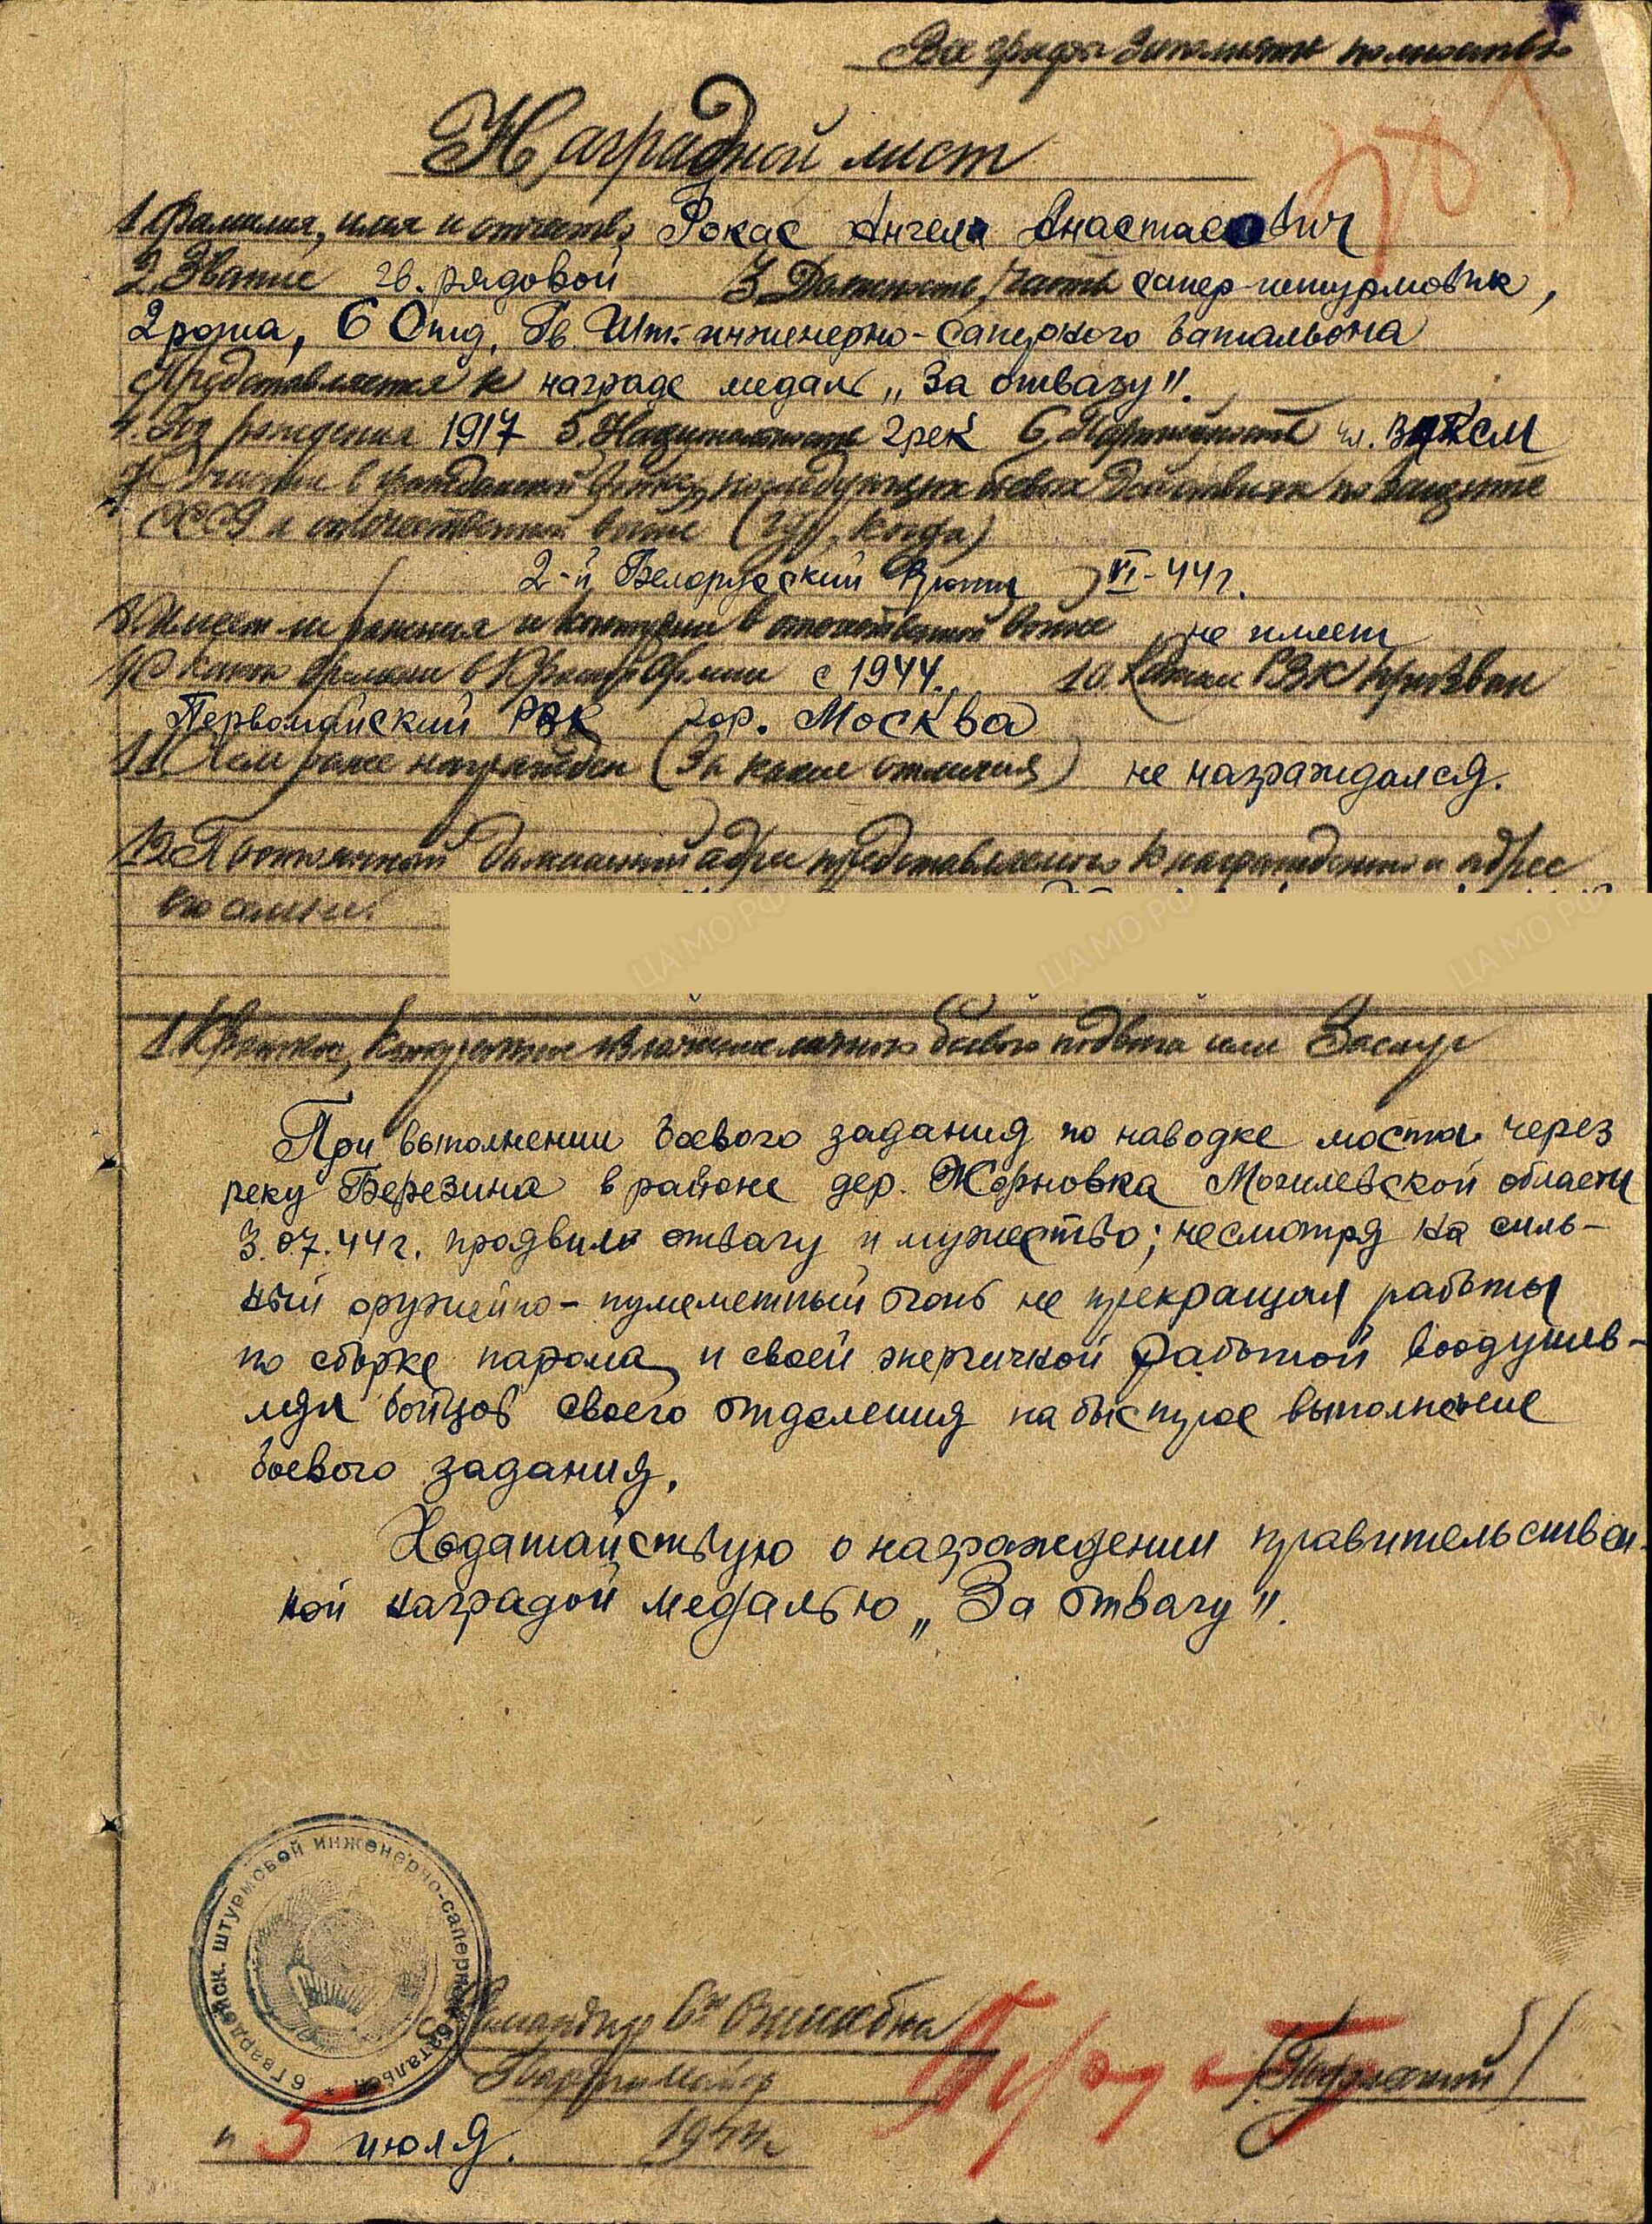 Все графы заполнять полностью
Наградной лист
1. Фамилия, имя и отчество Рокас Ангел Анастасович
2. Звание гв. рядовой 3. Должность, часть сапер-штурмовик,
2 рота, 6 Отд. Гв. Шт. инженерно-саперного батальона
Представляется к награде медаль „За отвагу".
4. Год рождения 1917 5. Национальность грек 6. Партийность чл. ВЛКСМ
7. Участие в гражданской войне, последующих боевых действиях по защите
СССР и отечественной войне (где, когда)
2-й Белорусский фронт VI-44г.
8. Имеет ли ранения и контузии в отечественной войне не имеет
9. С какого времени в Красной Армии с 1944. 10. Каким РВК призван
Первомайский РВК гор. Москва
11. Чем ранее награжден (За какие отличия) не награждался.
12. Постоянный домашний адрес представляемого к награждению и адрес
его семьи.
1. Краткое, конкретное изложение личного боевого подвига или Заслуг
При выполнении боевого задания по наводке моста через
реку Березина в районе дер. Жорновка Могилевской области
3.07.44г. проявил отвагу и мужество; несмотря на силь-
ный оружейно-пулеметный огонь не прекращал работы
по сборке парома и своей энергичной работой воодушев-
лял бойцов своего отделения на быстрое выполнение
боевого задания.
Ходатайствую о награждении правительствен-
ной наградой медалью „За отвагу".
6 Гвардейск. штурмовой инженерно-саперный батальон
Командир 6 гв ошисбна
Гвардии майор
„5 июля. 1944г